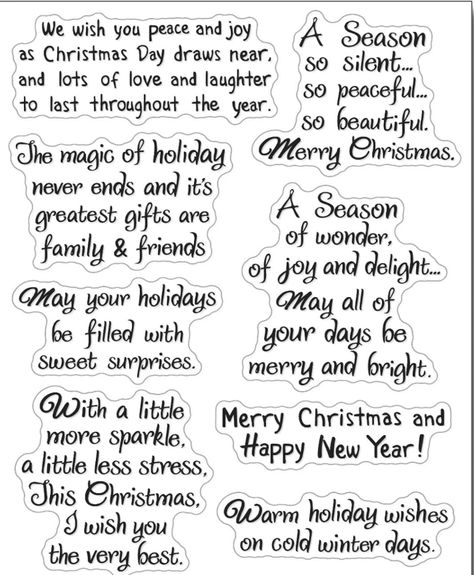 We wish you peace and joy
as Christmas Day draws near,
and lots of love and laughter
to last throughout the year.
The magic of holiday
never ends and it's
greatest gifts are
family & friends
May your holidays
be filled with
sweet surprises.
With a little
more sparkle,
a little less stress,
This Christmas,
I wish you
the very best.
A Season
so silent...
so peaceful...
so beautiful.
Merry Christmas.
A Season
of wonder,
of joy and delight...
May all of
your days be
merry and bright.
Merry Christmas and
Happy New Year!
Warm holiday wishes
on cold winter days.